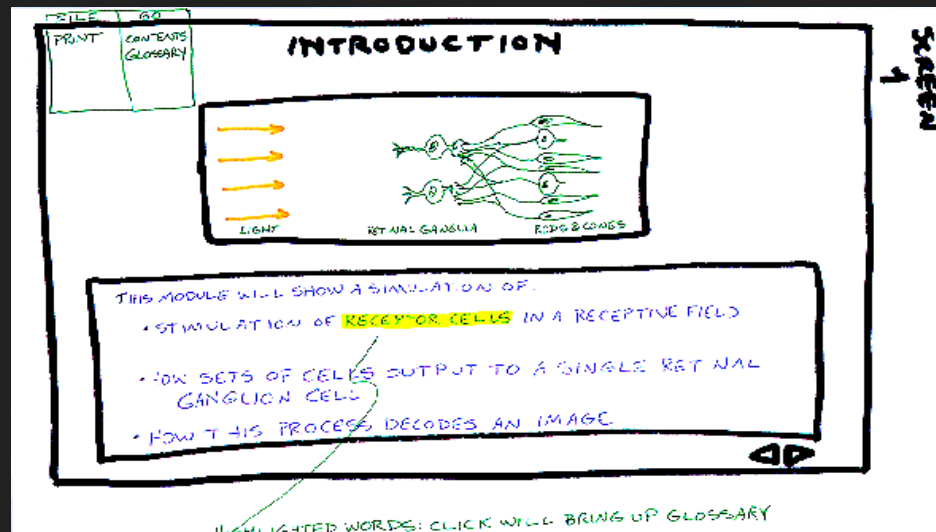 FILE GO
PRINT CONTENTS
GLOSSARY
INTRODUCTION
SCREEN
1
LIGHT RETINAL GANGLIA RODS & CONES
THIS MODULE WILL SHOW A SIMULATION OF:
• STIMULATION OF RECEPTOR CELLS IN A RECEPTIVE FIELD
• HOW SETS OF CELLS OUTPUT TO A SINGLE RETINAL
GANGLION CELL
• HOW THIS PROCESS DECODES AN IMAGE
HIGHLIGHTED WORDS: CLICK WILL BRING UP GLOSSARY